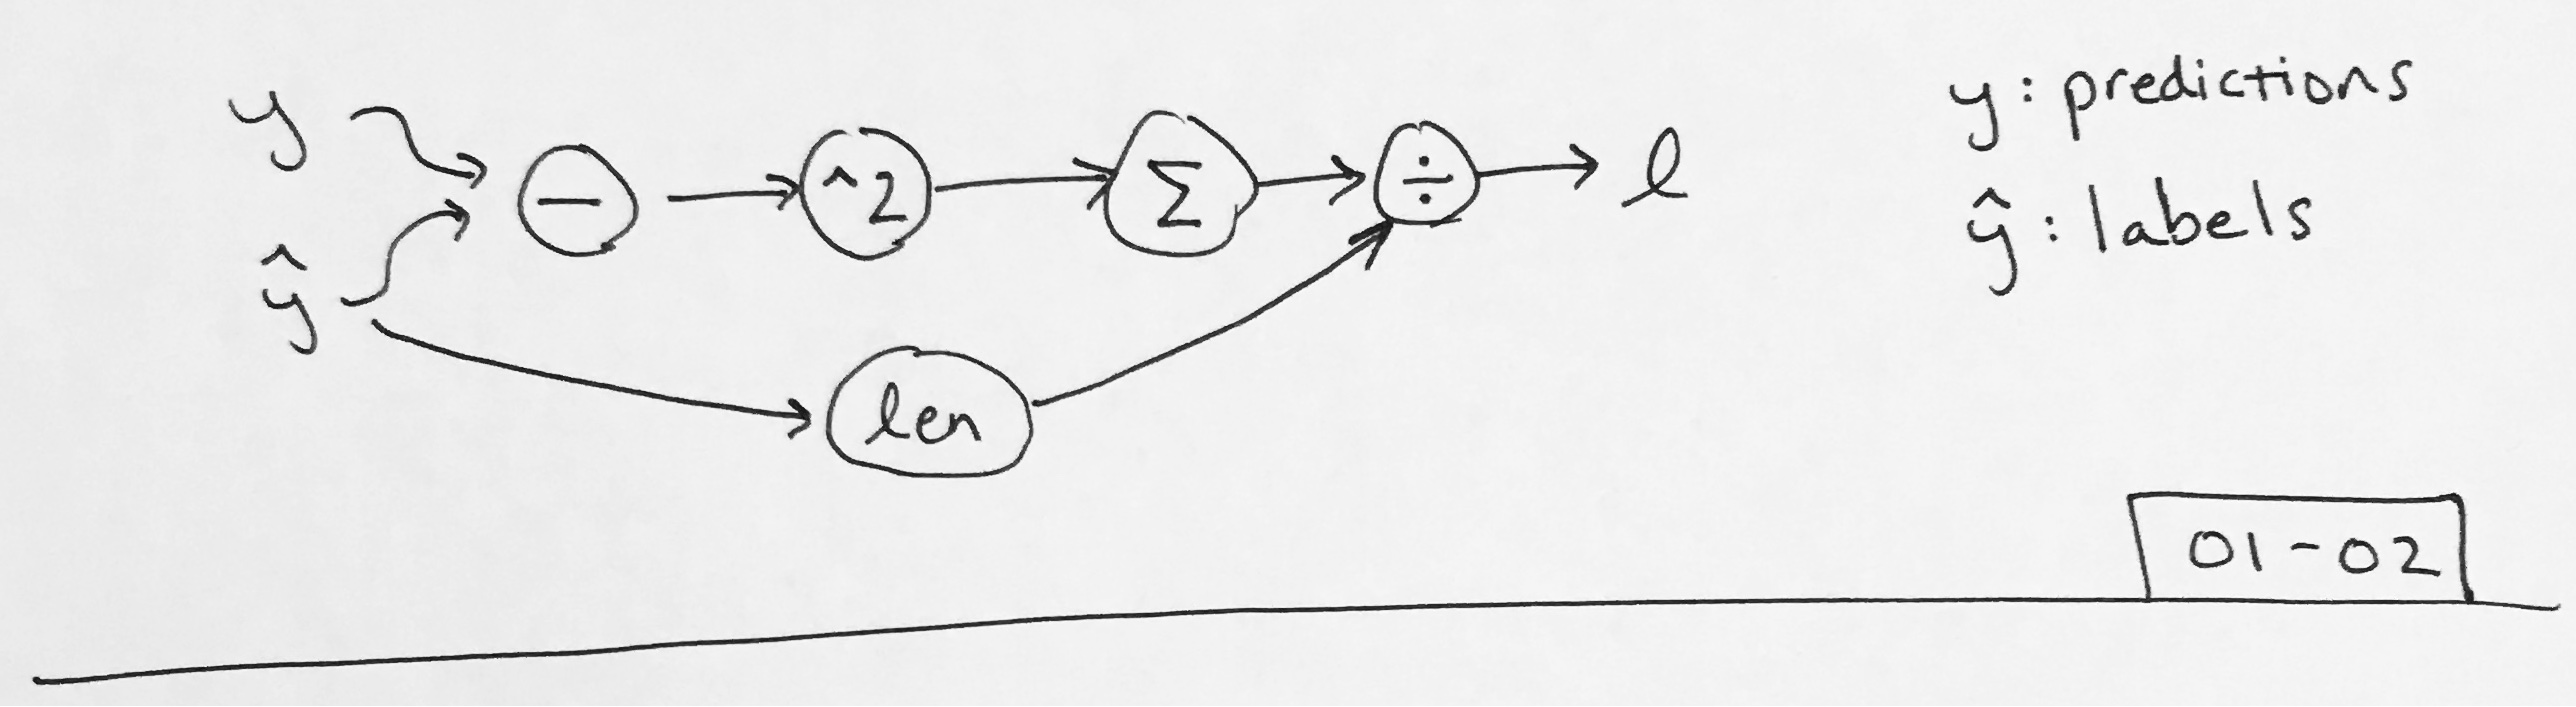 y
ŷ
−
^2
Σ
÷
l
len
y: predictions
ŷ: labels
01-02